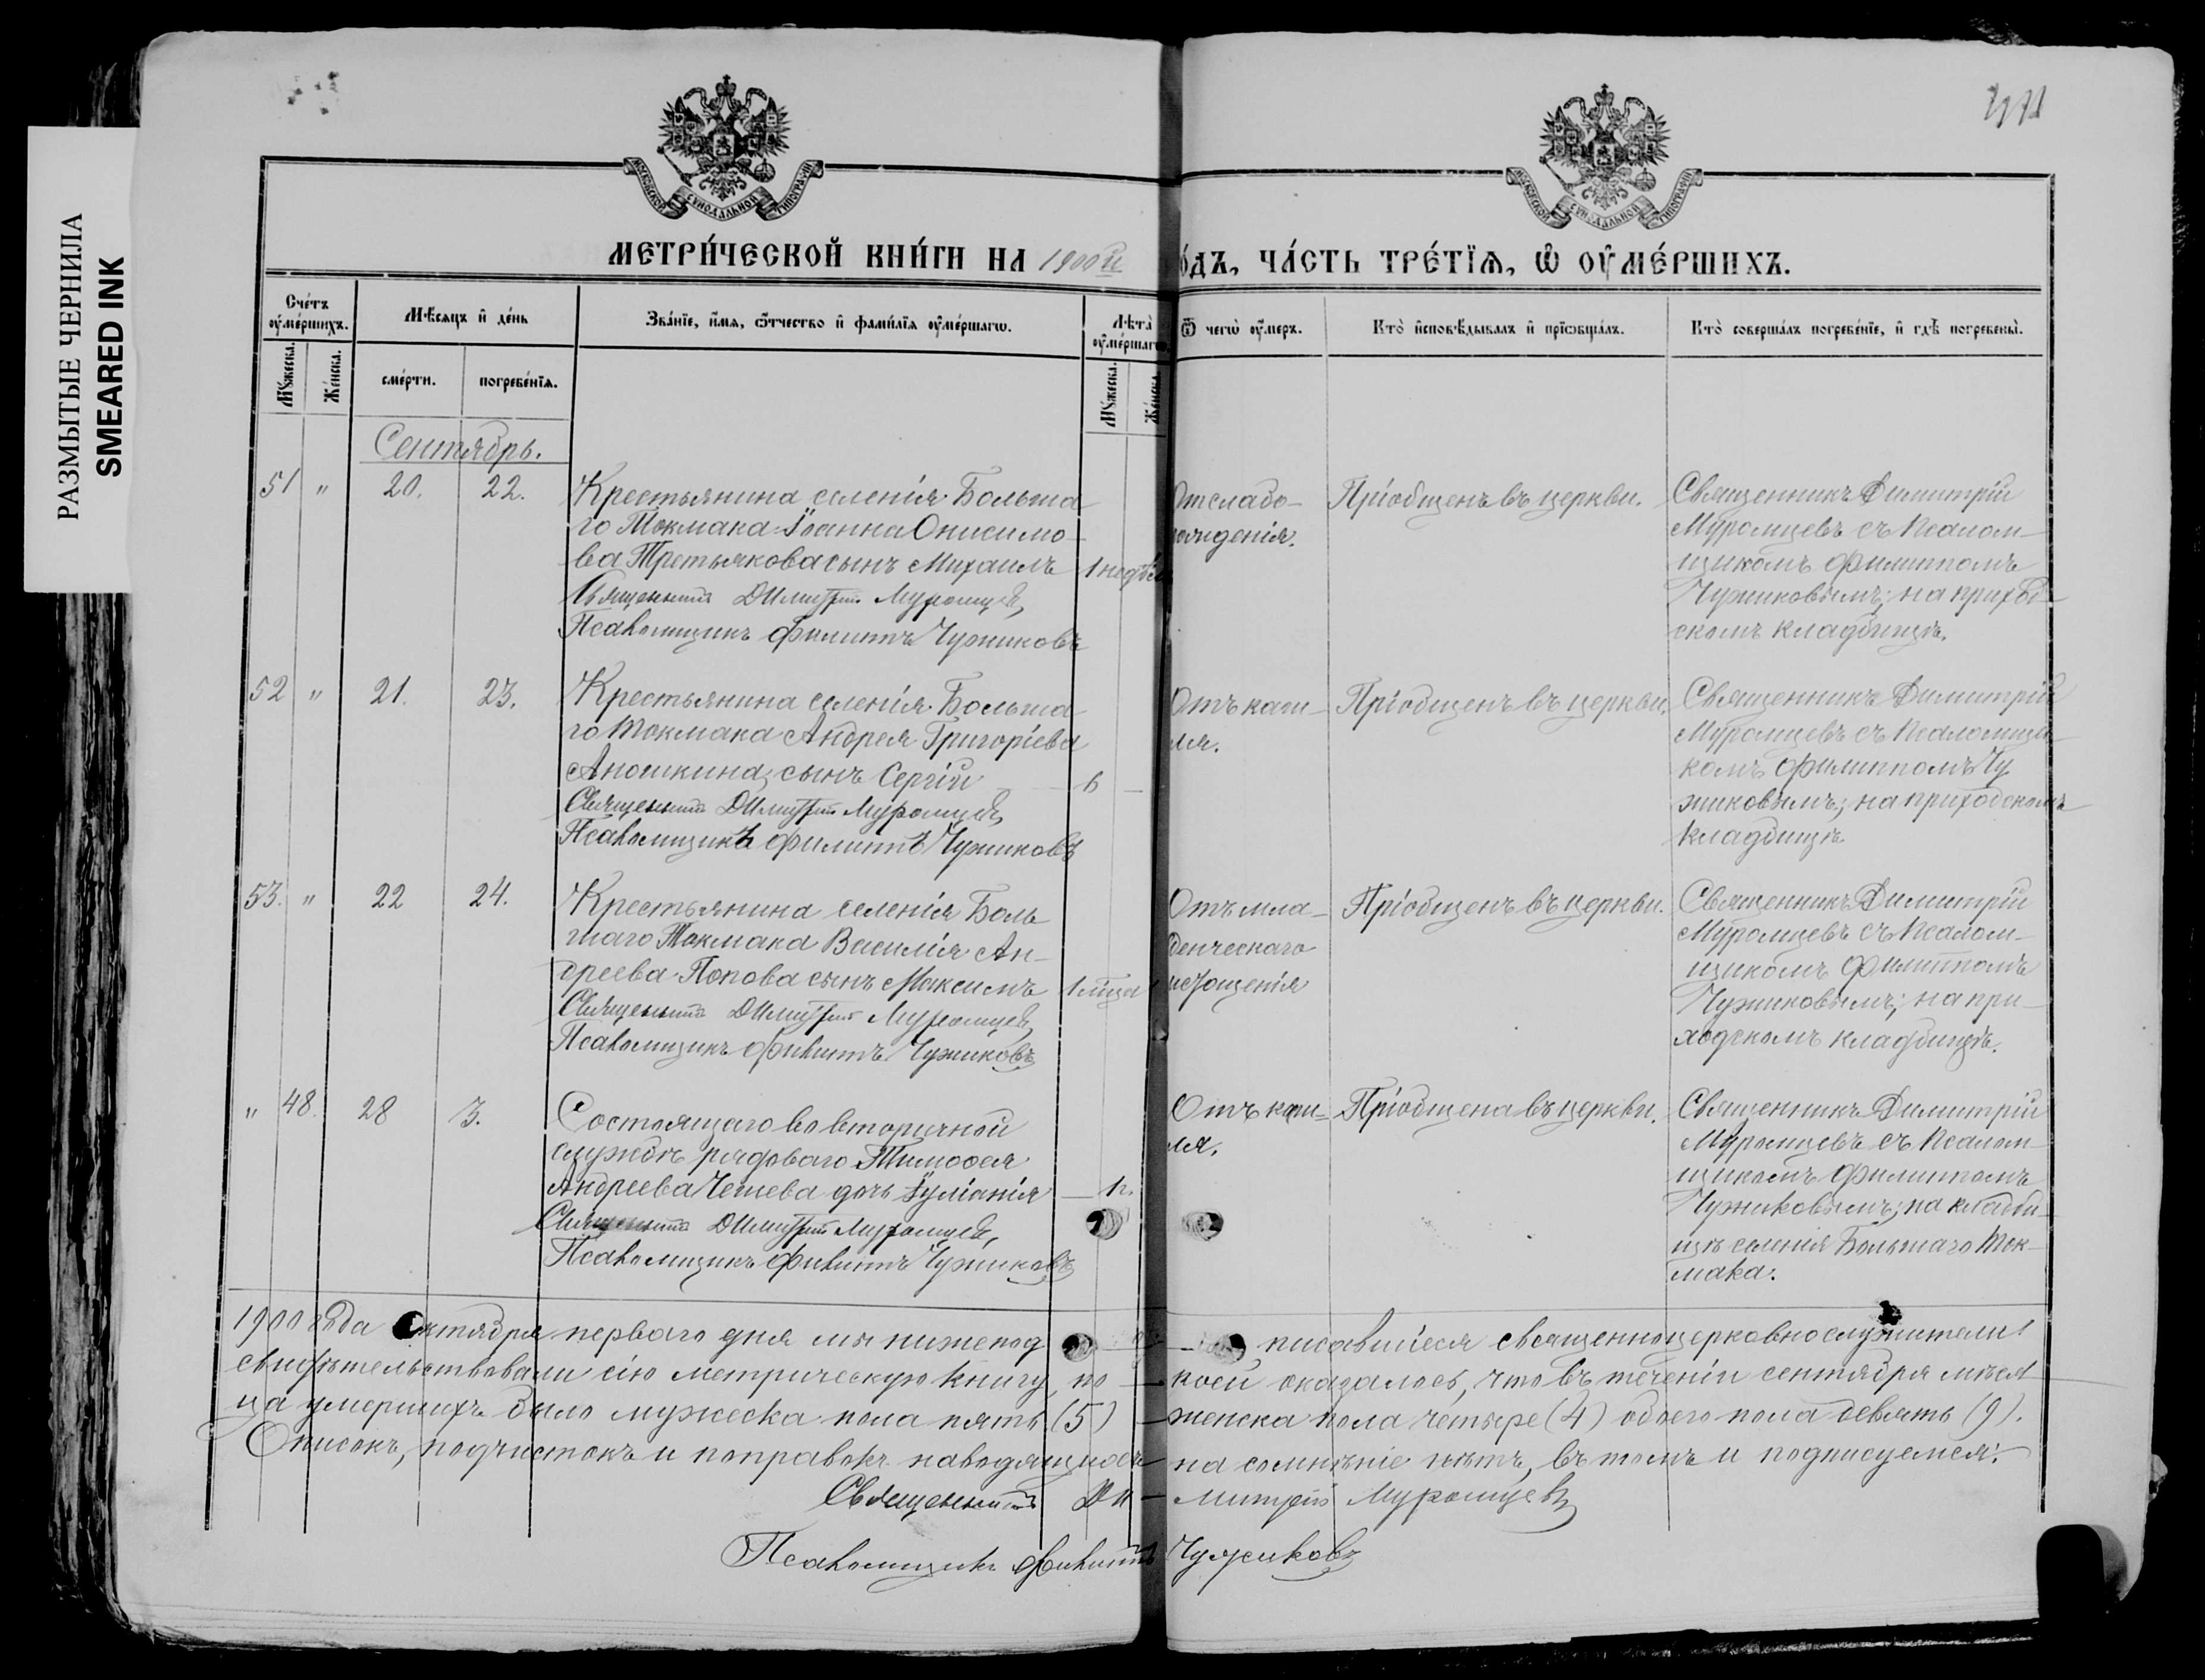 РАЗМЫТЫЕ ЧЕРНИЛА
SMEARED INK
МОСКОВСКОЙ СѴНОДАЛЬНОЙ ТИПОГРАФІИ
МОСКОВСКОЙ СѴНОДАЛЬНОЙ ТИПОГРАФІИ
МЕТРИ́ЧЕСКОЙ КНИ́ГИ НА 1900й
о́дъ, ЧА́СТЬ ТРЕ́ТЇѦ, Ѿ ОУ҆МЕ́РШИХЪ.
Сче́тъ оу҆ме́ршихъ.
Мѣсяцъ и де́нь
Зва́нїе, и҆мя, ѿтчество и фами́лїя оу҆ме́ршагѡ.
Лѣта̀ оу҆ме́ршагѡ.
Ѿ чегѡ̀ оу҆меръ.
Кто̀ и҆сповѣдывалъ и прїѡбща́лъ.
Кто̀ соверша́лъ погребе́нїе, и гдѣ̀ погребены̀.
Мꙋжеска.
Же́нска.
сме́рти.
погребе́нїѧ.
Мꙋжеска.
Же́нска.
Сентябрь.
51 " 20. 22.
Крестьянина селенія Больша-
го Токмака Іоанна Онисимо-
ва Третьякова сынъ Михаилъ
Священникъ Димитрій Муромцевъ,
Псаломщикъ Филиппъ Чужиковъ
1 недѣля
От слабо-
рожденія.
Пріобщенъ въ церкви.
Священникъ Димитрій
Муромцевъ съ Псалом-
щикомъ Филиппомъ
Чужиковымъ; на
скомъ кладбищѣ.
52 " 21. 23.
Крестьянина селенія Больша-
го Токмака Андрея Григоріева
Аношкина, сынъ Сергій
Священникъ Димитрій Муромцевъ,
Псаломщикъ Филиппъ Чужиковъ
6
Отъ каш-
ля.
Пріобщенъ въ церкви.
Священникъ Димитрій
Муромцевъ съ Псаломщи-
комъ Филиппомъ Чу
жиковымъ; на приходскомъ
кладбищѣ.
53. " 22 24.
Крестьянина селенія Боль
шаго Токмака Василія Ан-
дреева Попова сынъ Максимъ
Священникъ Димитрій Муромцевъ,
Псаломщикъ Филиппъ Чужиковъ
1 мѣсяцъ
Отъ мла-
денческаго
истощенія
Пріобщенъ въ церкви.
Священникъ Димитрій
Муромцевъ съ Псалом-
щикомъ Филиппомъ
Чужиковымъ; на при-
ходскомъ кладбищѣ.
" 48. 28 3.
Состоящаго во вторичной
службѣ рядоваго Тимоѳея
Андреева дочь Іуліанія
Священникъ Димитрій Муромцевъ,
Псаломщикъ Филиппъ Чужиковъ
Отъ каш-
ля.
Пріобщена въ церкви.
Священникъ Димитрій
Муромцевъ съ Псалом-
щикомъ Филиппомъ
Чужиковымъ; на кладби-
щѣ селенія Большаго Ток-
мака.
1900 года Октября перваго дня мы нижепод - писавшіеся священноцерковнослужители
свидѣтельствовали сію метрическую книгу, по - коей оказалось, что въ теченіи сентября мѣся
ца умершихъ было мужеска пола пять (5) - женска пола четыре (4) обоего пола девять (9).
Описокъ, подчистокъ и поправокъ наводящихъ на сомнѣніе нѣтъ, въ томъ и подписуемся:
Священникъ Ди - митрій Муромцевъ
Псаломщикъ Филиппъ Чужиковъ